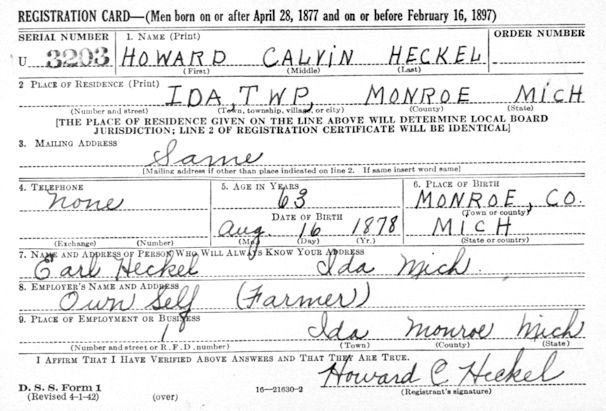 REGISTRATION CARD—(Men born on or after April 28, 1877 and on or before February 16, 1897)
SERIAL NUMBER 1. NAME (Print) ORDER NUMBER
U 3203 HOWARD CALVIN HECKEL
(First) (Middle) (Last)
2 PLACE OF RESIDENCE (Print)
IDA, TWP, MONROE MICH
(Number and street) (Town, township, village, or city) (County) (State)
[THE PLACE OF RESIDENCE GIVEN ON THE LINE ABOVE WILL DETERMINE LOCAL BOARD
JURISDICTION; LINE 2 OF REGISTRATION CERTIFICATE WILL BE IDENTICAL]
3. MAILING ADDRESS
Same
[Mailing address if other than place indicated on line 2. If same insert word same]
4. TELEPHONE 5. AGE IN YEARS 6. PLACE OF BIRTH
none 63 MONROE, CO.
DATE OF BIRTH (Town or county)
Aug. 16 1878 MICH
(Exchange) (Number) (Mo.) (Day) (Yr.) (State or country)
7. NAME AND ADDRESS OF PERSON WHO WILL ALWAYS KNOW YOUR ADDRESS
Earl Heckel Ida Mich.
8. EMPLOYER'S NAME AND ADDRESS
Own Self (Farmer)
9. PLACE OF EMPLOYMENT OR BUSINESS
Ida Monroe Mich
(Number and street or R. F. D. number) (Town) (County) (State)
I AFFIRM THAT I HAVE VERIFIED ABOVE ANSWERS AND THAT THEY ARE TRUE.
Howard C. Heckel
D. S. S. Form 1
(Revised 4-1-42) (over) 16—21630-2 (Registrant's signature)